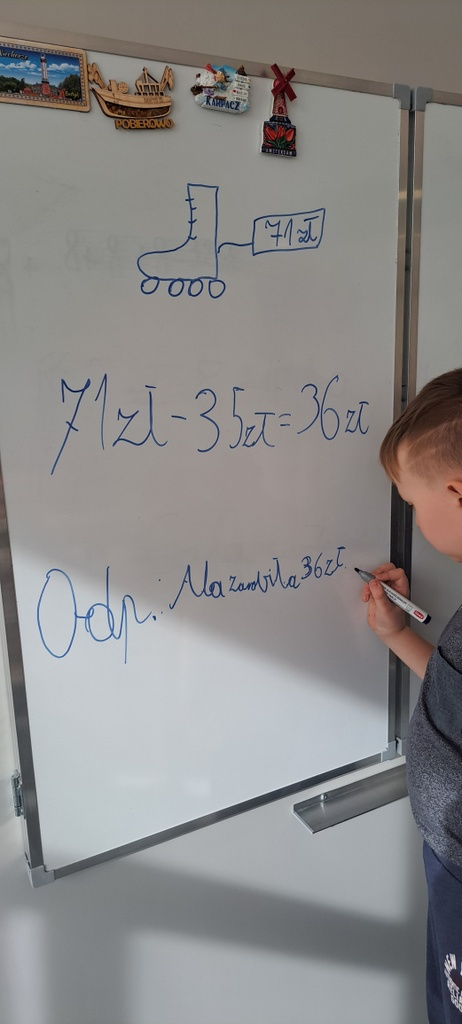 POBIEROWO
KARPACZ
AMSTERDAM
71 zł
71zł-35zł=36zł
Odp.: Ala zarobiła 36zł.